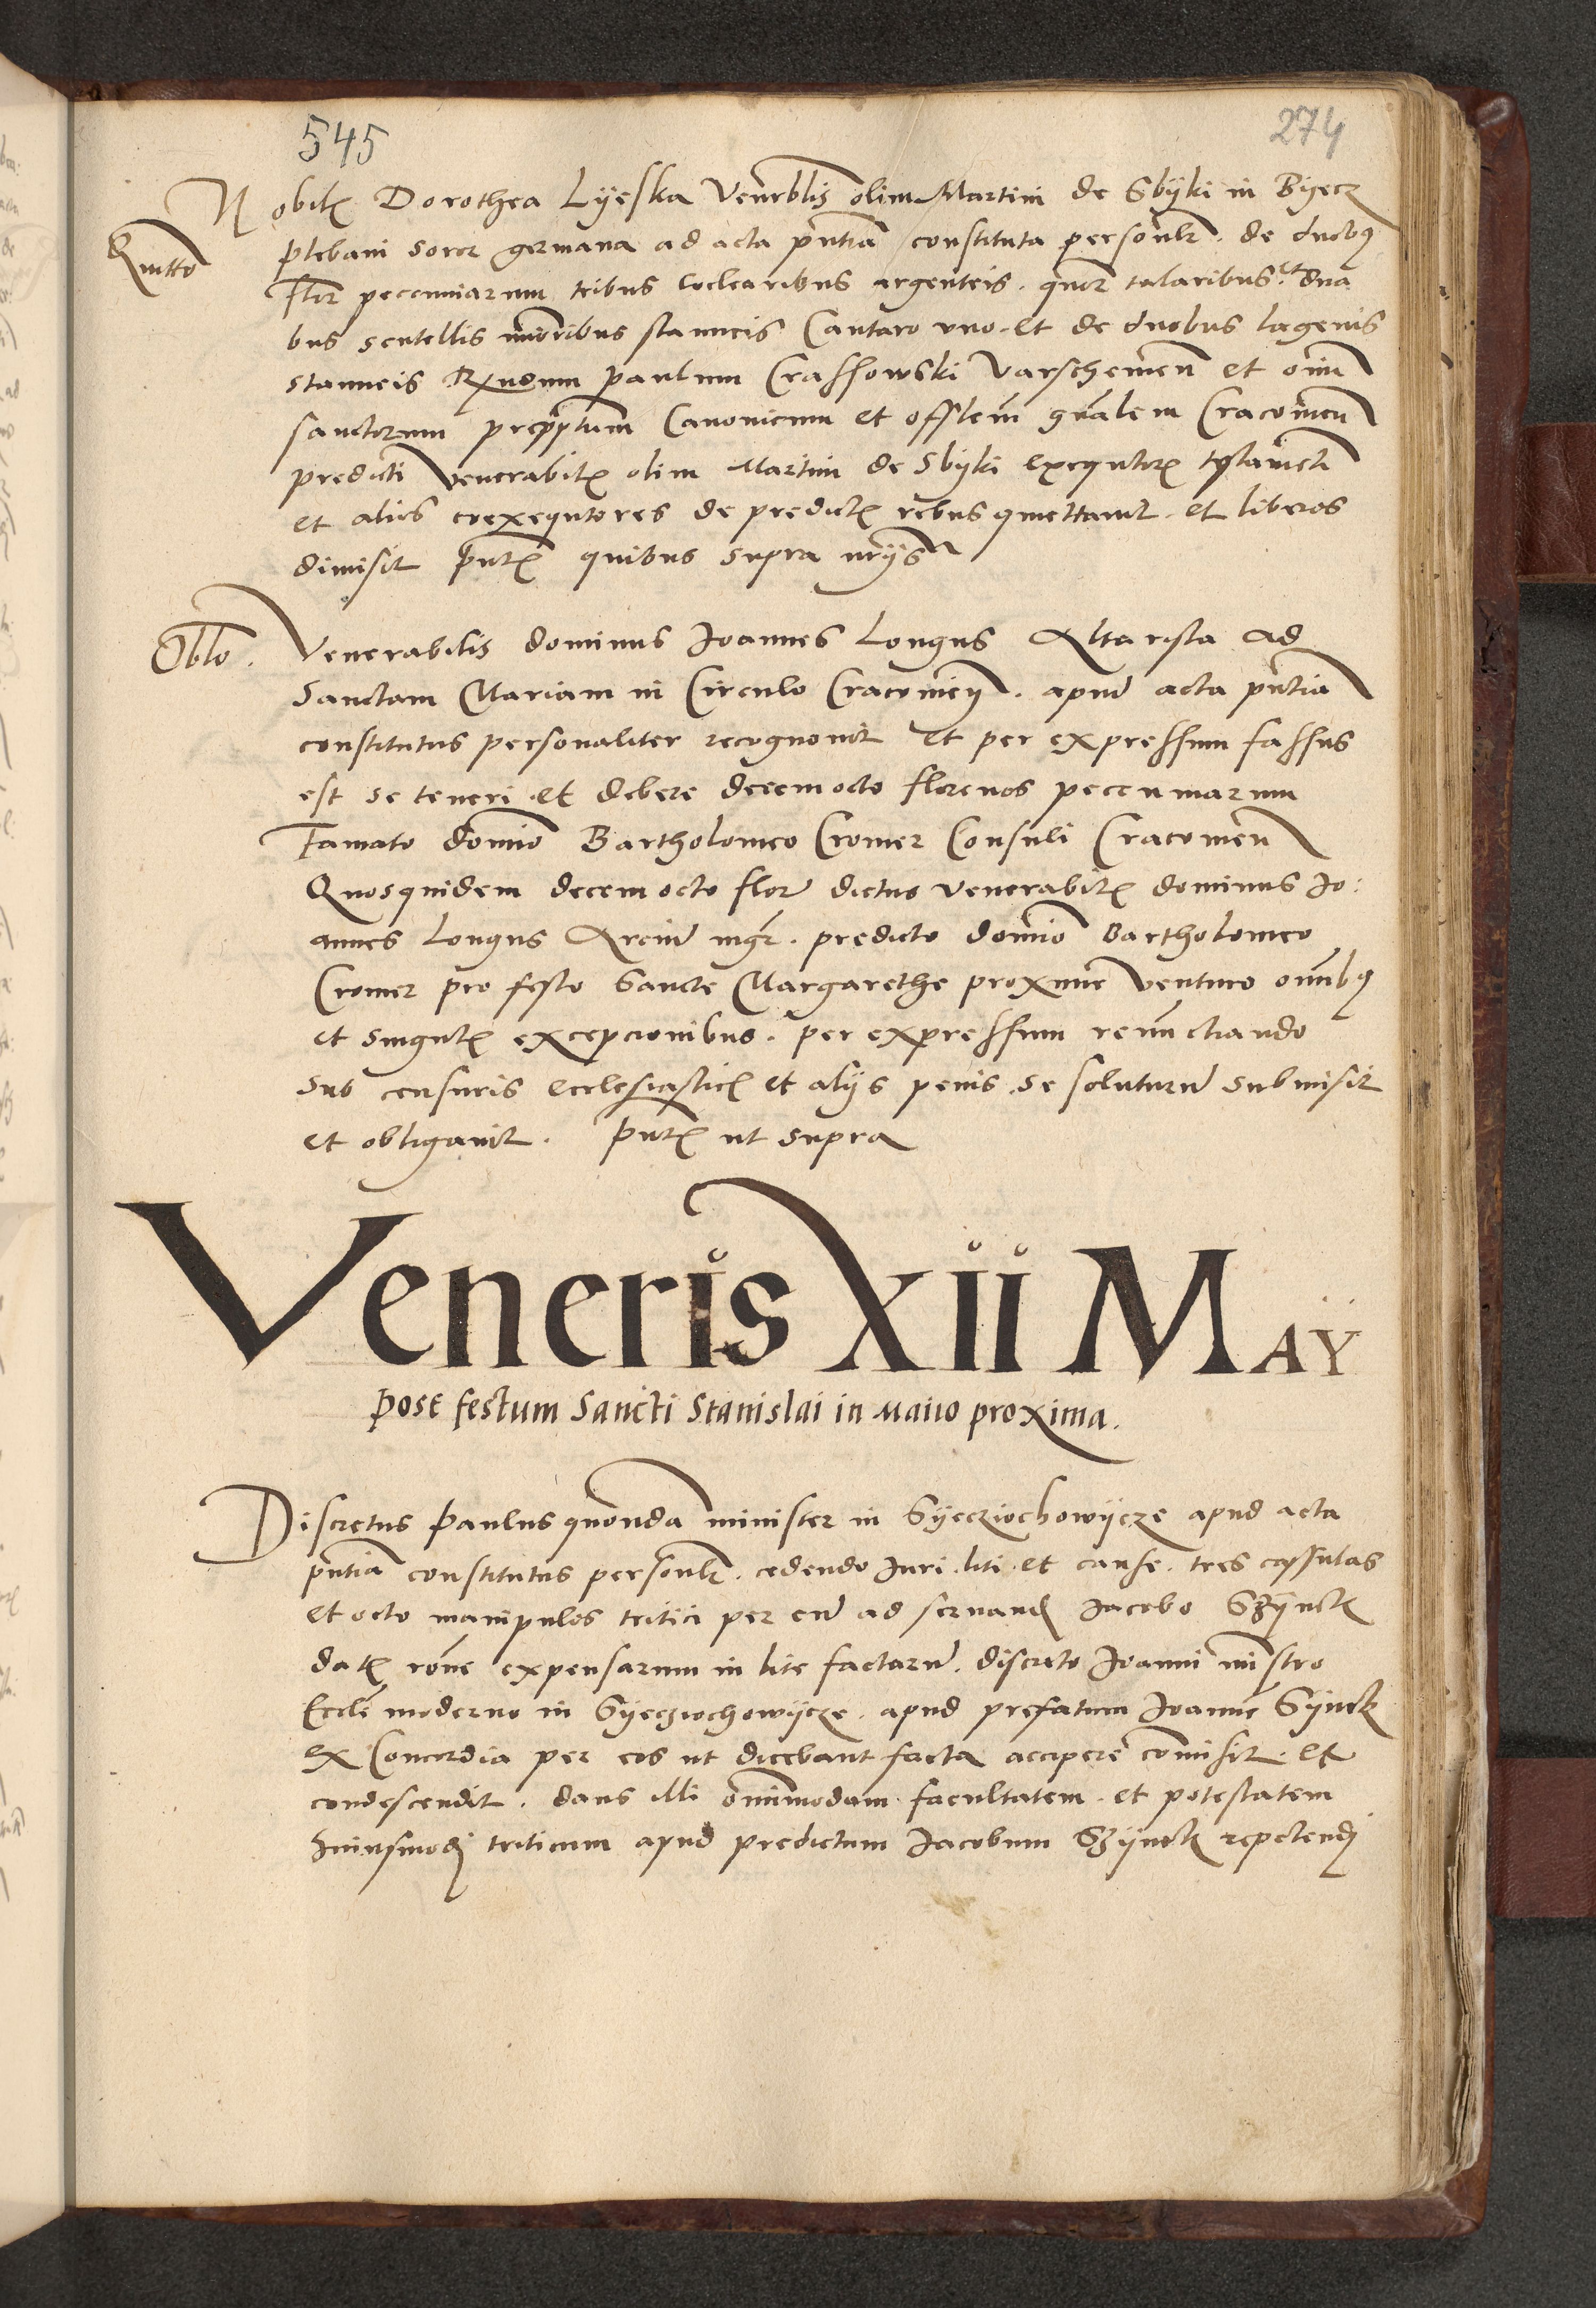 545
274
Nobilꝭ Dorothea Lyeska Venerblis olim Martini de Sbyki in Byecz
Quitto
plebani soror germana ad acta pntia constituta personlr. de duobꝰ
flor peccuniarum tribus coclearibus argenteis. quor talaribus. et dua
bus scutellis minoribus stanneis Cantaro vno. et de duobus lagenis
stanneis Rxndum paulum Crassowski Varschemien et omniu
sanctorum prepptum Canonicum et offlem gnalem Cracouien
predicti venerabilꝭ olim Martini de Sbyki exequtorꝭ testamēti
et alios coexequtores de predictꝭ rebus quiettauit. et liberos
dimisit pntꝭ quibus supra
Oblo.
Venerabilis dominus Joannes Longus Altarista ad
Sanctam Mariam in Circulo Cracouien. apud acta pntia
constitutus personaliter recognouit et per expressum fassus
est se teneri et debere decem octo florenos peccuniarum
Famato domino Bartholomeo Cromer Consuli Cracouien
Quosquidem decem octo flor dictus venerabilꝭ dominus Jo:
annes Longus Arcium mgr. predicto domino Bartholomeo
Cromer pro festo Sancte Margarethe proxime venturo omibꝰ
et singulꝭ excepcionibus. per expressum renunctiando
sub censuris ecclesiasticꝭ et alijs penis se soluturum submisit
et obligauit. pntꝭ ut supra
Veneris XII MAY
post festum Sancti Stanislai in Maiio proxima.
Discretus Paulus quonda minister in Syeczichowycze apud acta
pntia constitutus personlr. cedendo Juri. liti. et cause. tres cassulas
et octo manipulos tritici per eum ad seruand Jacobo Szynckꝭ
datꝭ rone expensarum in lite factarum. discreto Joanni ministro
Eccle moderno in Syeczichowycze. apud prefatum Joannem Synck
ex Concordia per eos ut dicebant facta accipere comisit. et
condescendit. dans illi omnimodam facultatem. et potestatem
huiusmodi triticum apud predictum Jacobum Szynckꝭ repetendi